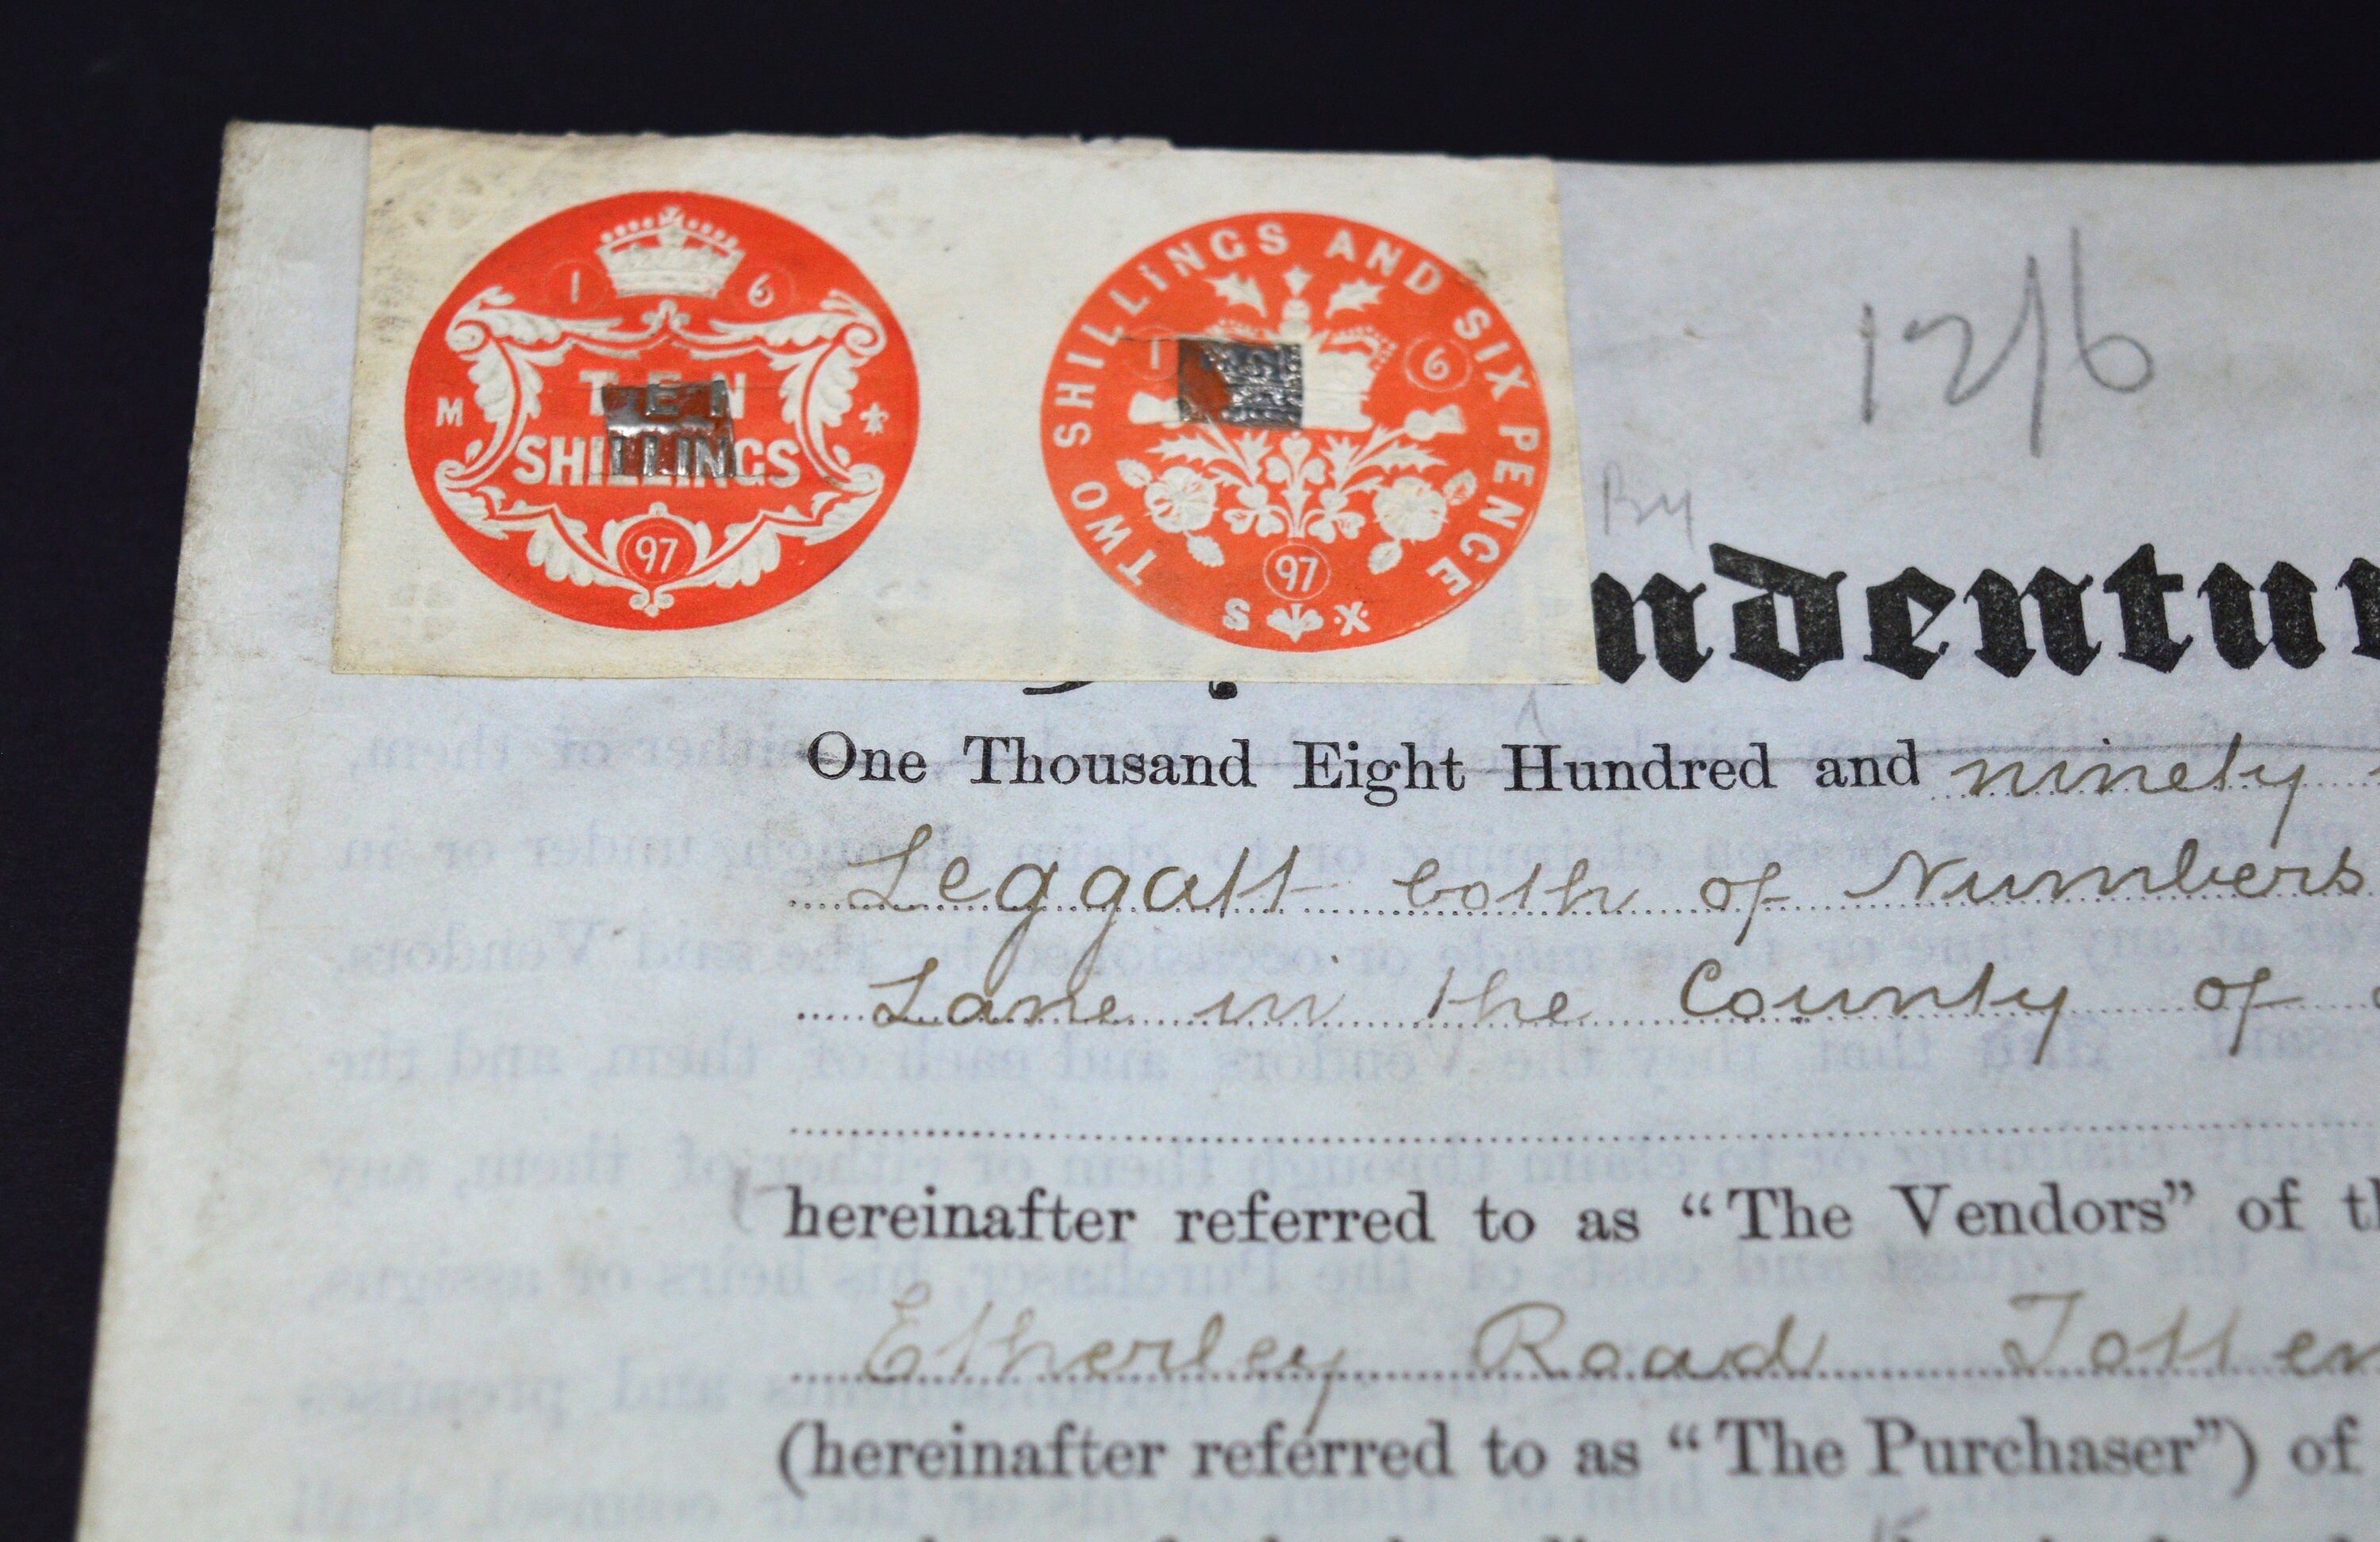 1 6
TEN
SHILLINGS
M
97
TWO SHILLINGS AND SIX PENCE
1 6
97
S X
12/6
By
ndentur
One Thousand Eight Hundred and ninety
Leggatt both of Numbers
Lane in the County of
hereinafter referred to as “The Vendors” of th
Etherley Road Totten
(hereinafter referred to as “The Purchaser”) of